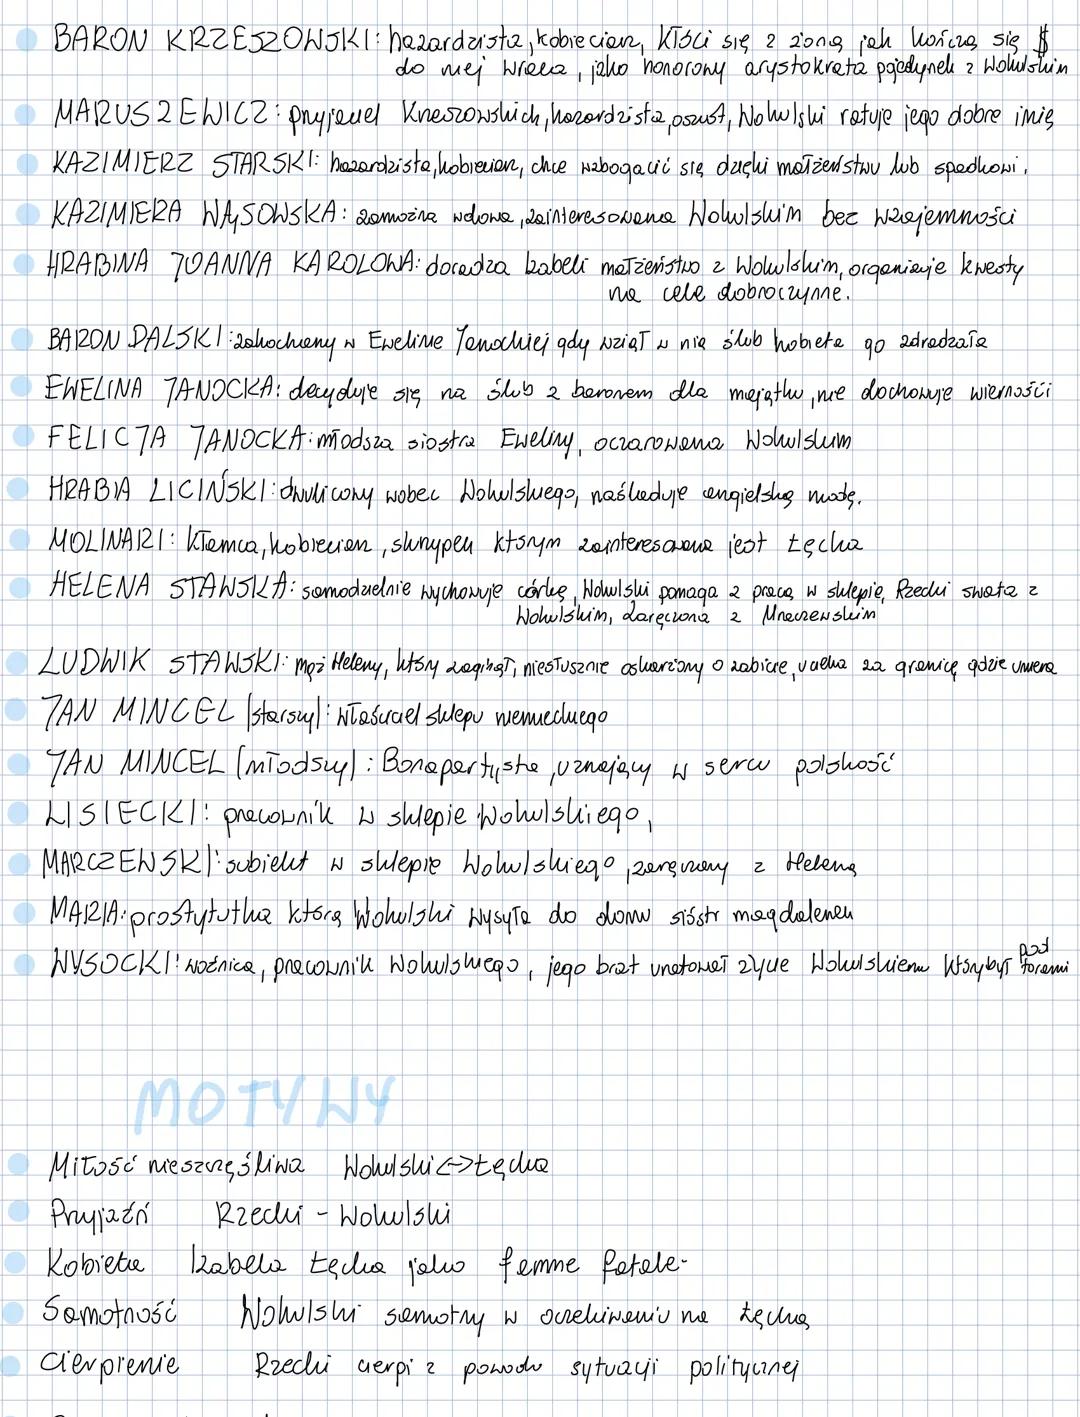 BARON KRZESZOWSKI: hazardzista, kobieciarz, kłóci się z żoną jak kończą się $
do niej wraca, jako honorowy arystokrata pojedynek z Wokulskim
MARUSZEWICZ: przyjaciel Krzeszowskich, hazardzista, oszust, Wokulski ratuje jego dobre imię
KAZIMIERZ STARSKI: hazardzista, kobieciarz, chce wzbogacić się dzięki małżeństwu lub spadkowi.
KAZIMIERA WĄSOWSKA: zamożna wdowa, zainteresowana Wokulskim bez wzajemności
HRABINA JOANNA KAROLOWA: doradza Izabeli małżeństwo z Wokulskim, organizuje kwesty
na cele dobroczynne.
BARON DALSKI: zakochany w Ewelinie Janockiej gdy wziął z nią ślub kobieta go zdradzała
EWELINA JANOCKA: decyduje się na ślub z baronem dla majątku, nie dochowuje wierności
FELICJA JANOCKA: młodsza siostra Eweliny, oczarowana Wokulskim
HRABIA LICIŃSKI: dwulicowy wobec Wokulskiego, naśladuje angielską modę.
MOLINARI: kłamca, kobieciarz, skrzypek którym zainteresowana jest Łęcka
HELENA STAWSKA: samodzielnie wychowuje córkę, Wokulski pomaga z pracą w sklepie, Rzecki swata z
Wokulskim, zaręczona z Mraczewskim
LUDWIK STAWSKI: mąż Heleny, który zaginął, niesłusznie oskarżony o zabicie, ucieka za granicę gdzie umiera
JAN MINCEL (starszy): właściciel sklepu niemieckiego
JAN MINCEL (młodszy): Bonapartysta, uznający w sercu polskość
LISIECKI: pracownik w sklepie Wokulskiego,
MARCZEWSKI: subiekt w sklepie Wokulskiego, zaręczony z Heleną
MARIA: prostytutka którą Wokulski wysyła do domu sióstr magdalenek
WYSOCKI: woźnica, pracownik Wokulskiego, jego brat uratował życie Wokulskiemu który był pod torami
MOTYWY
Miłość nieszczęśliwa Wokulski <-> Łęcka
Przyjaźń Rzecki - Wokulski
Kobieta Izabela Łęcka jako femme fatale-
Samotność Wokulski samotny w oczekiwaniu na Łęcką
Cierpienie Rzecki cierpi z powodu sytuacji politycznej